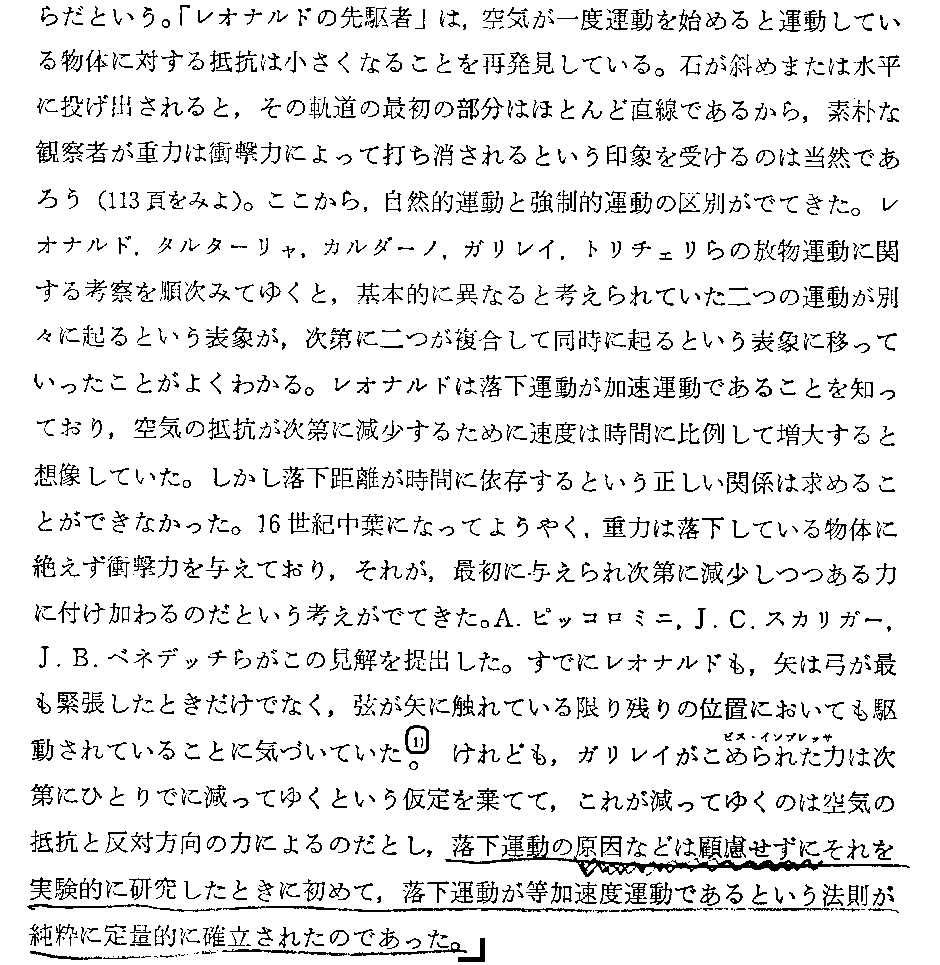 らだという。「レオナルドの先駆者」は，空気が一度運動を始めると運動してい
る物体に対する抵抗は小さくなることを再発見している。石が斜めまたは水平
に投げ出されると，その軌道の最初の部分はほとんど直線であるから，素朴な
観察者が重力は衝撃力によって打ち消されるという印象を受けるのは当然であ
ろう（113頁をみよ）。ここから，自然的運動と強制的運動の区別がでてきた。レ
オナルド，タルターリャ，カルダーノ，ガリレイ，トリチェリらの放物運動に関
する考察を順次みてゆくと，基本的に異なると考えられていた二つの運動が別
々に起るという表象が，次第に二つが複合して同時に起るという表象に移って
いったことがよくわかる。レオナルドは落下運動が加速運動であることを知っ
ており，空気の抵抗が次第に減少するために速度は時間に比例して増大すると
想像していた。しかし落下距離が時間に依存するという正しい関係は求めるこ
とができなかった。16世紀中葉になってようやく，重力は落下している物体に
絶えず衝撃力を与えており，それが，最初に与えられ次第に減少しつつある力
に付け加わるのだという考えがでてきた。A. ピッコロミニ，J. C. スカリガー，
J. B. ベネデッチらがこの見解を提出した。すでにレオナルドも，矢は弓が最
も緊張したときだけでなく，弦が矢に触れている限り残りの位置においても駆
動されていることに気づいていた1)。けれども，ガリレイがこめられた力は次
ビス・インプレッサ
第にひとりでに減ってゆくという仮定を棄てて，これが減ってゆくのは空気の
抵抗と反対方向の力によるのだとし，落下運動の原因などは顧慮せずにそれを
実験的に研究したときに初めて，落下運動が等加速度運動であるという法則が
純粋に定量的に確立されたのであった。」